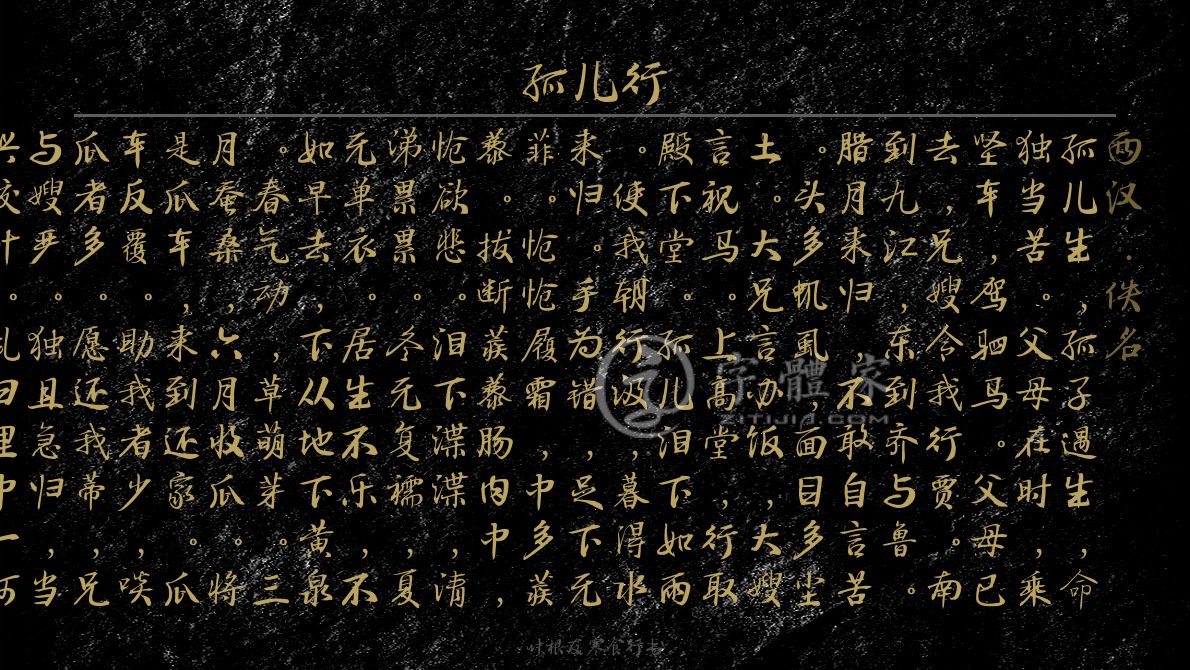 孤儿行
两汉.佚名
孤儿生，孤子遇生，命
独当苦。父母在时，乘
坚车，驾驷马。父母已
去兄嫂令我行贾。南
到九江，东到齐与鲁。
腊月来归，不敢自言苦
。头多虮虱，面目多尘
土。大兄言办饭，大嫂
言祝马。上高堂，行取
殿下堂。孤儿泪下如雨
。使我朝行汲，暮得水
来归。手为错，足下无
菲。怆怆履霜，中多蒺
藜。拔断蒺藜肠肉中，
怆欲悲。泪下渫渫，清
涕累累。冬无复襦，夏
无单衣。居生不乐，不
如早去，下从地下黄泉
。春气动，草萌芽。三
月蚕桑，六月收瓜。将
是瓜车，来到还家。瓜
车反覆。助我者少，啖
瓜者多。愿还我蒂，兄
与嫂严。独且急归，当
兴校计。乱曰里中一何